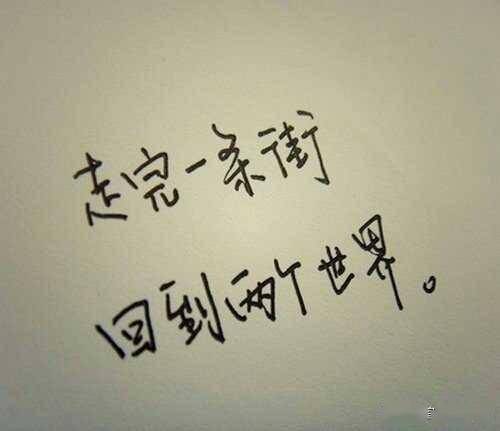 走完一条街
回到两个世界。